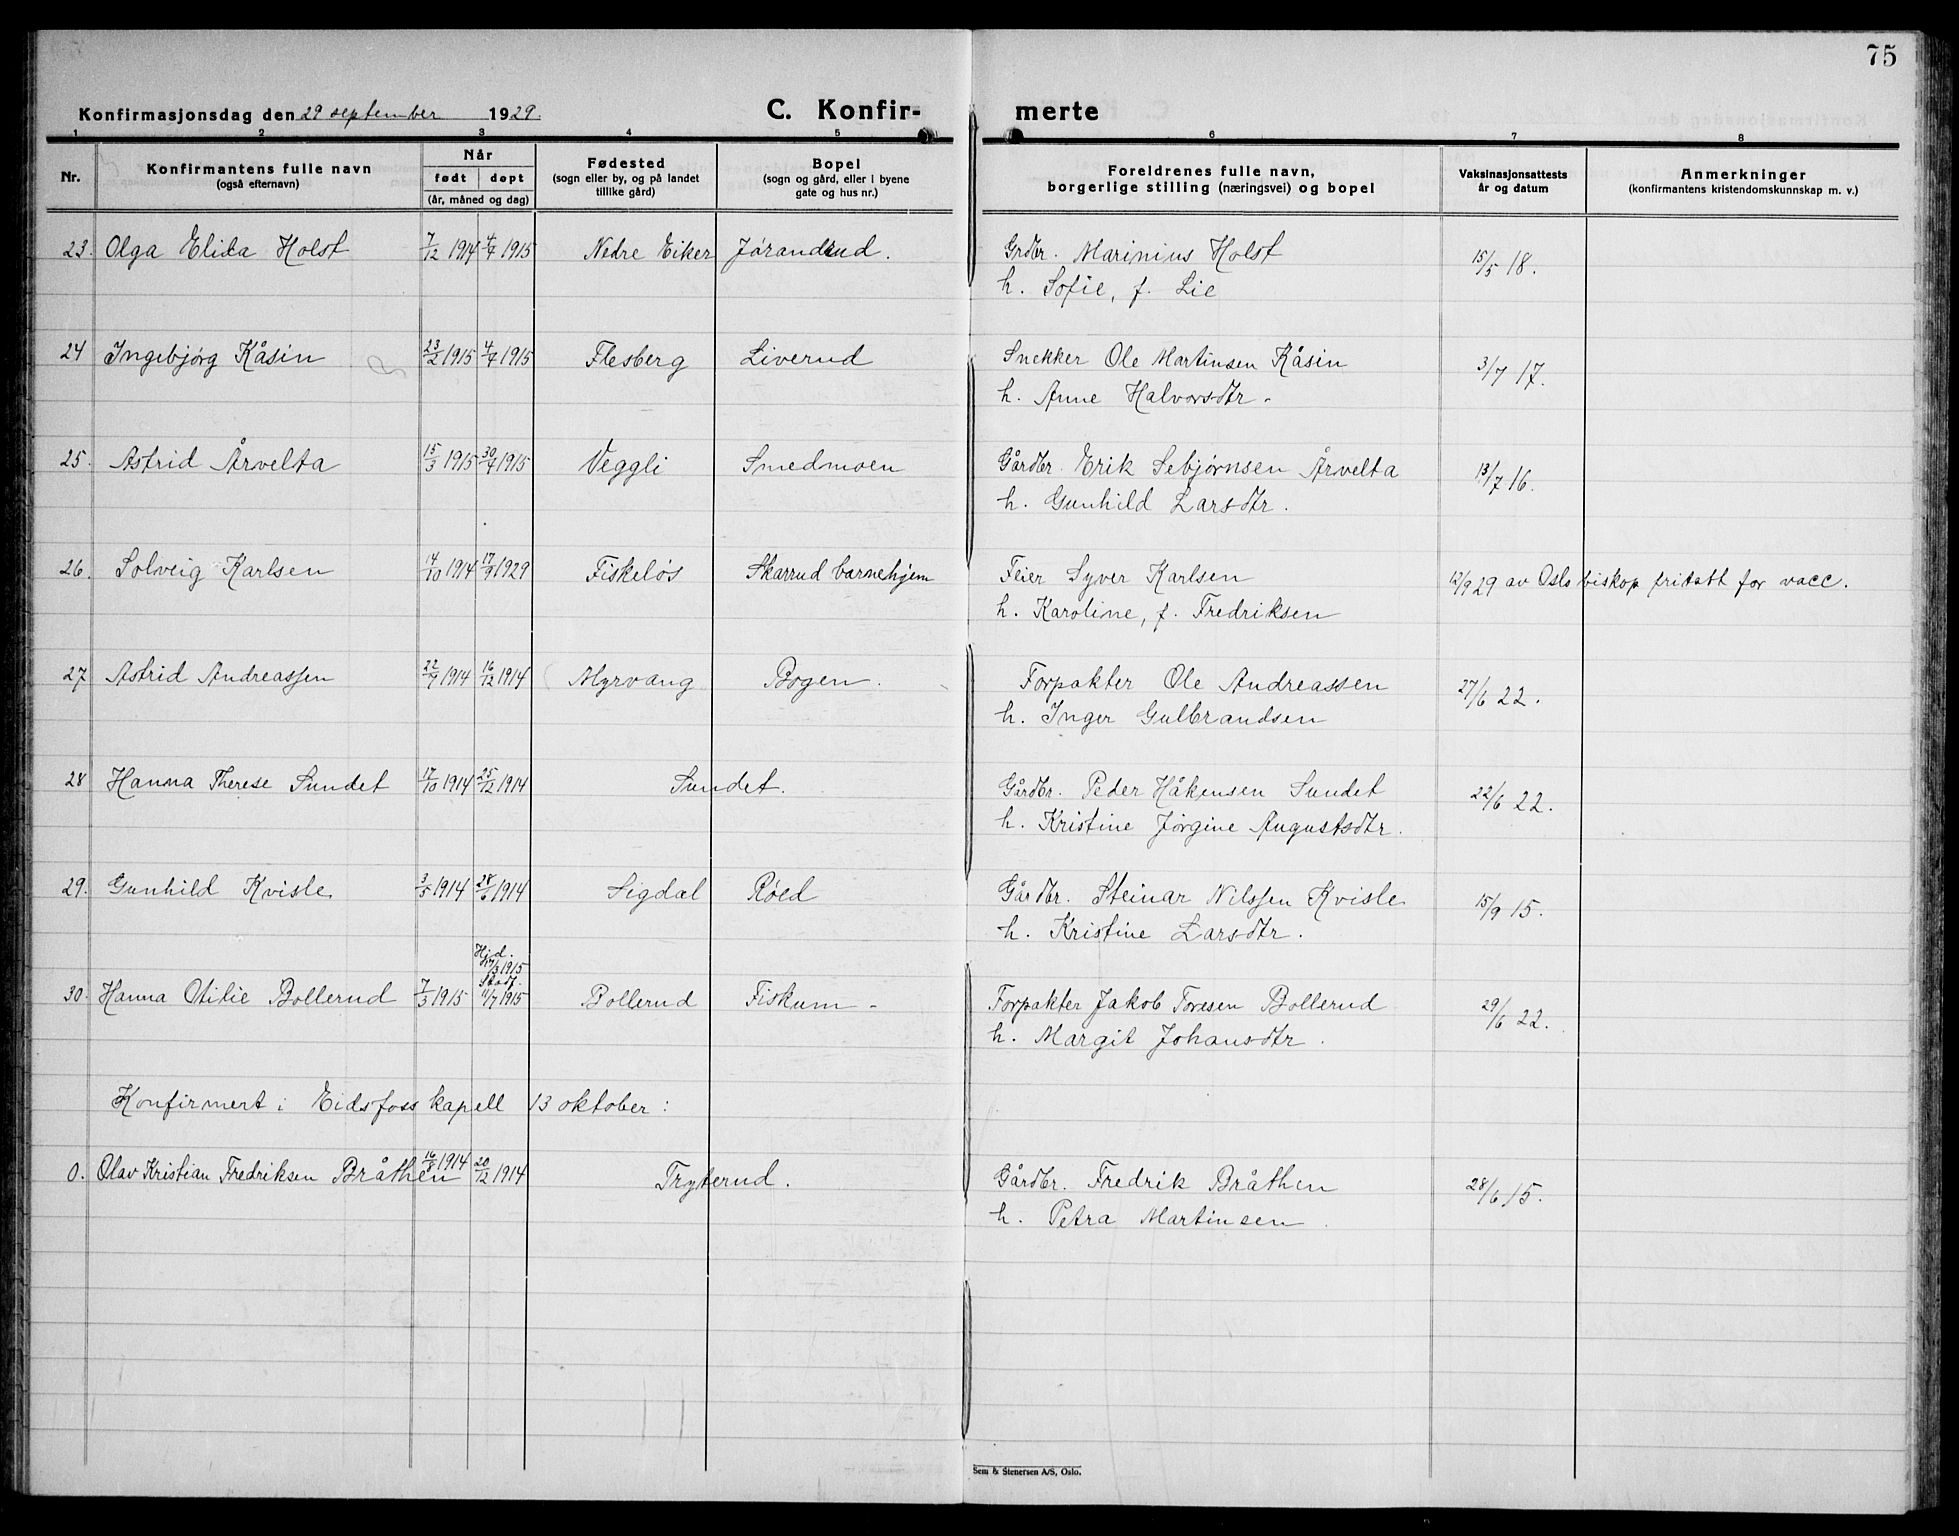 75
Konfirmasjonsdag den 29 september 1929.
C. Konfir-
merte
1 2 3 4 5 6 7 8
Nr.
Konfirmantens fulle navn
(også efternavn)
Når
født døpt
(år, måned og dag)
Fødested
(sogn eller by, og på landet
tillike gård)
Bopel
(sogn og gård, eller i byene
gate og hus nr.)
Foreldrenes fulle navn,
borgerlige stilling (næringsvei) og bopel
Vaksinasjonsattests
år og datum
Anmerkninger
(konfirmantens kristendomskunnskap m. v.)
23. Olga Elida Holst 7/12 1914 4/4 1915 Nedre Eiker Jørandrud. Grdbr. Marinius Holst 15/5 18.
h. Sofie, f. Lie
24 Ingebjørg Kåsin 23/2 1915 4/4 1915 Flesberg Liverud Snekker Ole Martinsen Kåsin 3/7 17.
h. Anne Halvorsdtr.
25. Astrid Årvelta 15/3 1915 30/4 1915 Veggli Smedmoen Gårdbr. Erik Sebjørnsen Årvelta 13/7 16.
h. Gunhild Larsdtr.
26. Solveig Karlsen 14/10 1914 17/9 1929 Fiskeløs Skarrud barnehjem Feier Syver Karlsen 12/9 29 av Oslo biskop fritatt for vacc.
h. Karoline, f. Fredriksen
27 Astrid Andreassen 22/9 1914 16/12 1914 Myrvang Bogen. Forpakter Ole Andreassen 27/6 22.
h. Inger Gulbrandsen
28 Hanna Therese Sundet 17/10 1914 25/12 1914 Sundet. Gårdbr. Peder Håkensen Sundet 22/6 22.
h. Kristine Jørgine Augustsdtr.
29. Gunhild Kvisle 3/5 1914 28/6 1914 Sigdal Røed Gårdbr. Steinar Nilssen Kvisle 15/9 15.
h. Kristine Larsdtr.
Hjd.
17/3 1915
Stadf.
30. Hanna Otilie Bollerud 7/3 1915 11/7 1915 Bollerud Fiskum - Forpakter Jakob Toresen Bollerud 29/6 22.
h. Margit Johansdtr.
Konfirmert i Eidsfoss kapell 13 oktober:
0. Olav Kristian Fredriksen Bråthen 16/8 1914 20/12 1914 Tryterud. Gårdbr. Fredrik Bråthen 28/6 15.
h. Petra Martinsen
Sem & Stenersen A/S, Oslo.